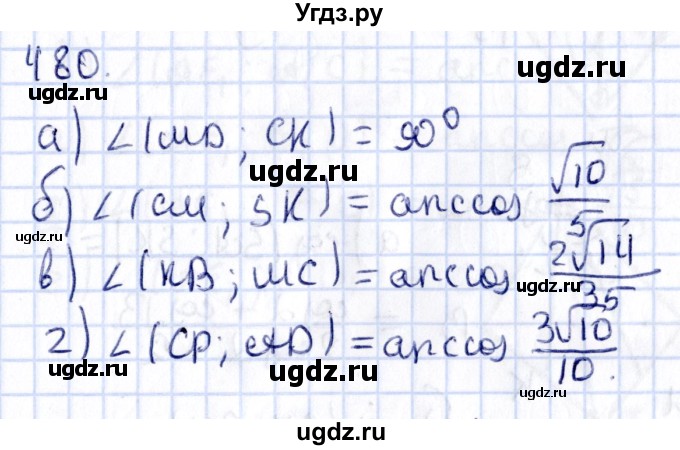 Угдз.ру
480.
ugdz.ru ugdz.ru
а) ∠(MD; CK) = 90°
ugdz.ru
б) ∠(CM; SK) = arccos √10/5
ugdz.ru
в) ∠(KB; MC) = arccos 2√14/35
ugdz.ru
г) ∠(CP; AD) = arccos 3√10/10.
ugdz.ru ugdz.ru ugdz.ru
ugdz.ru